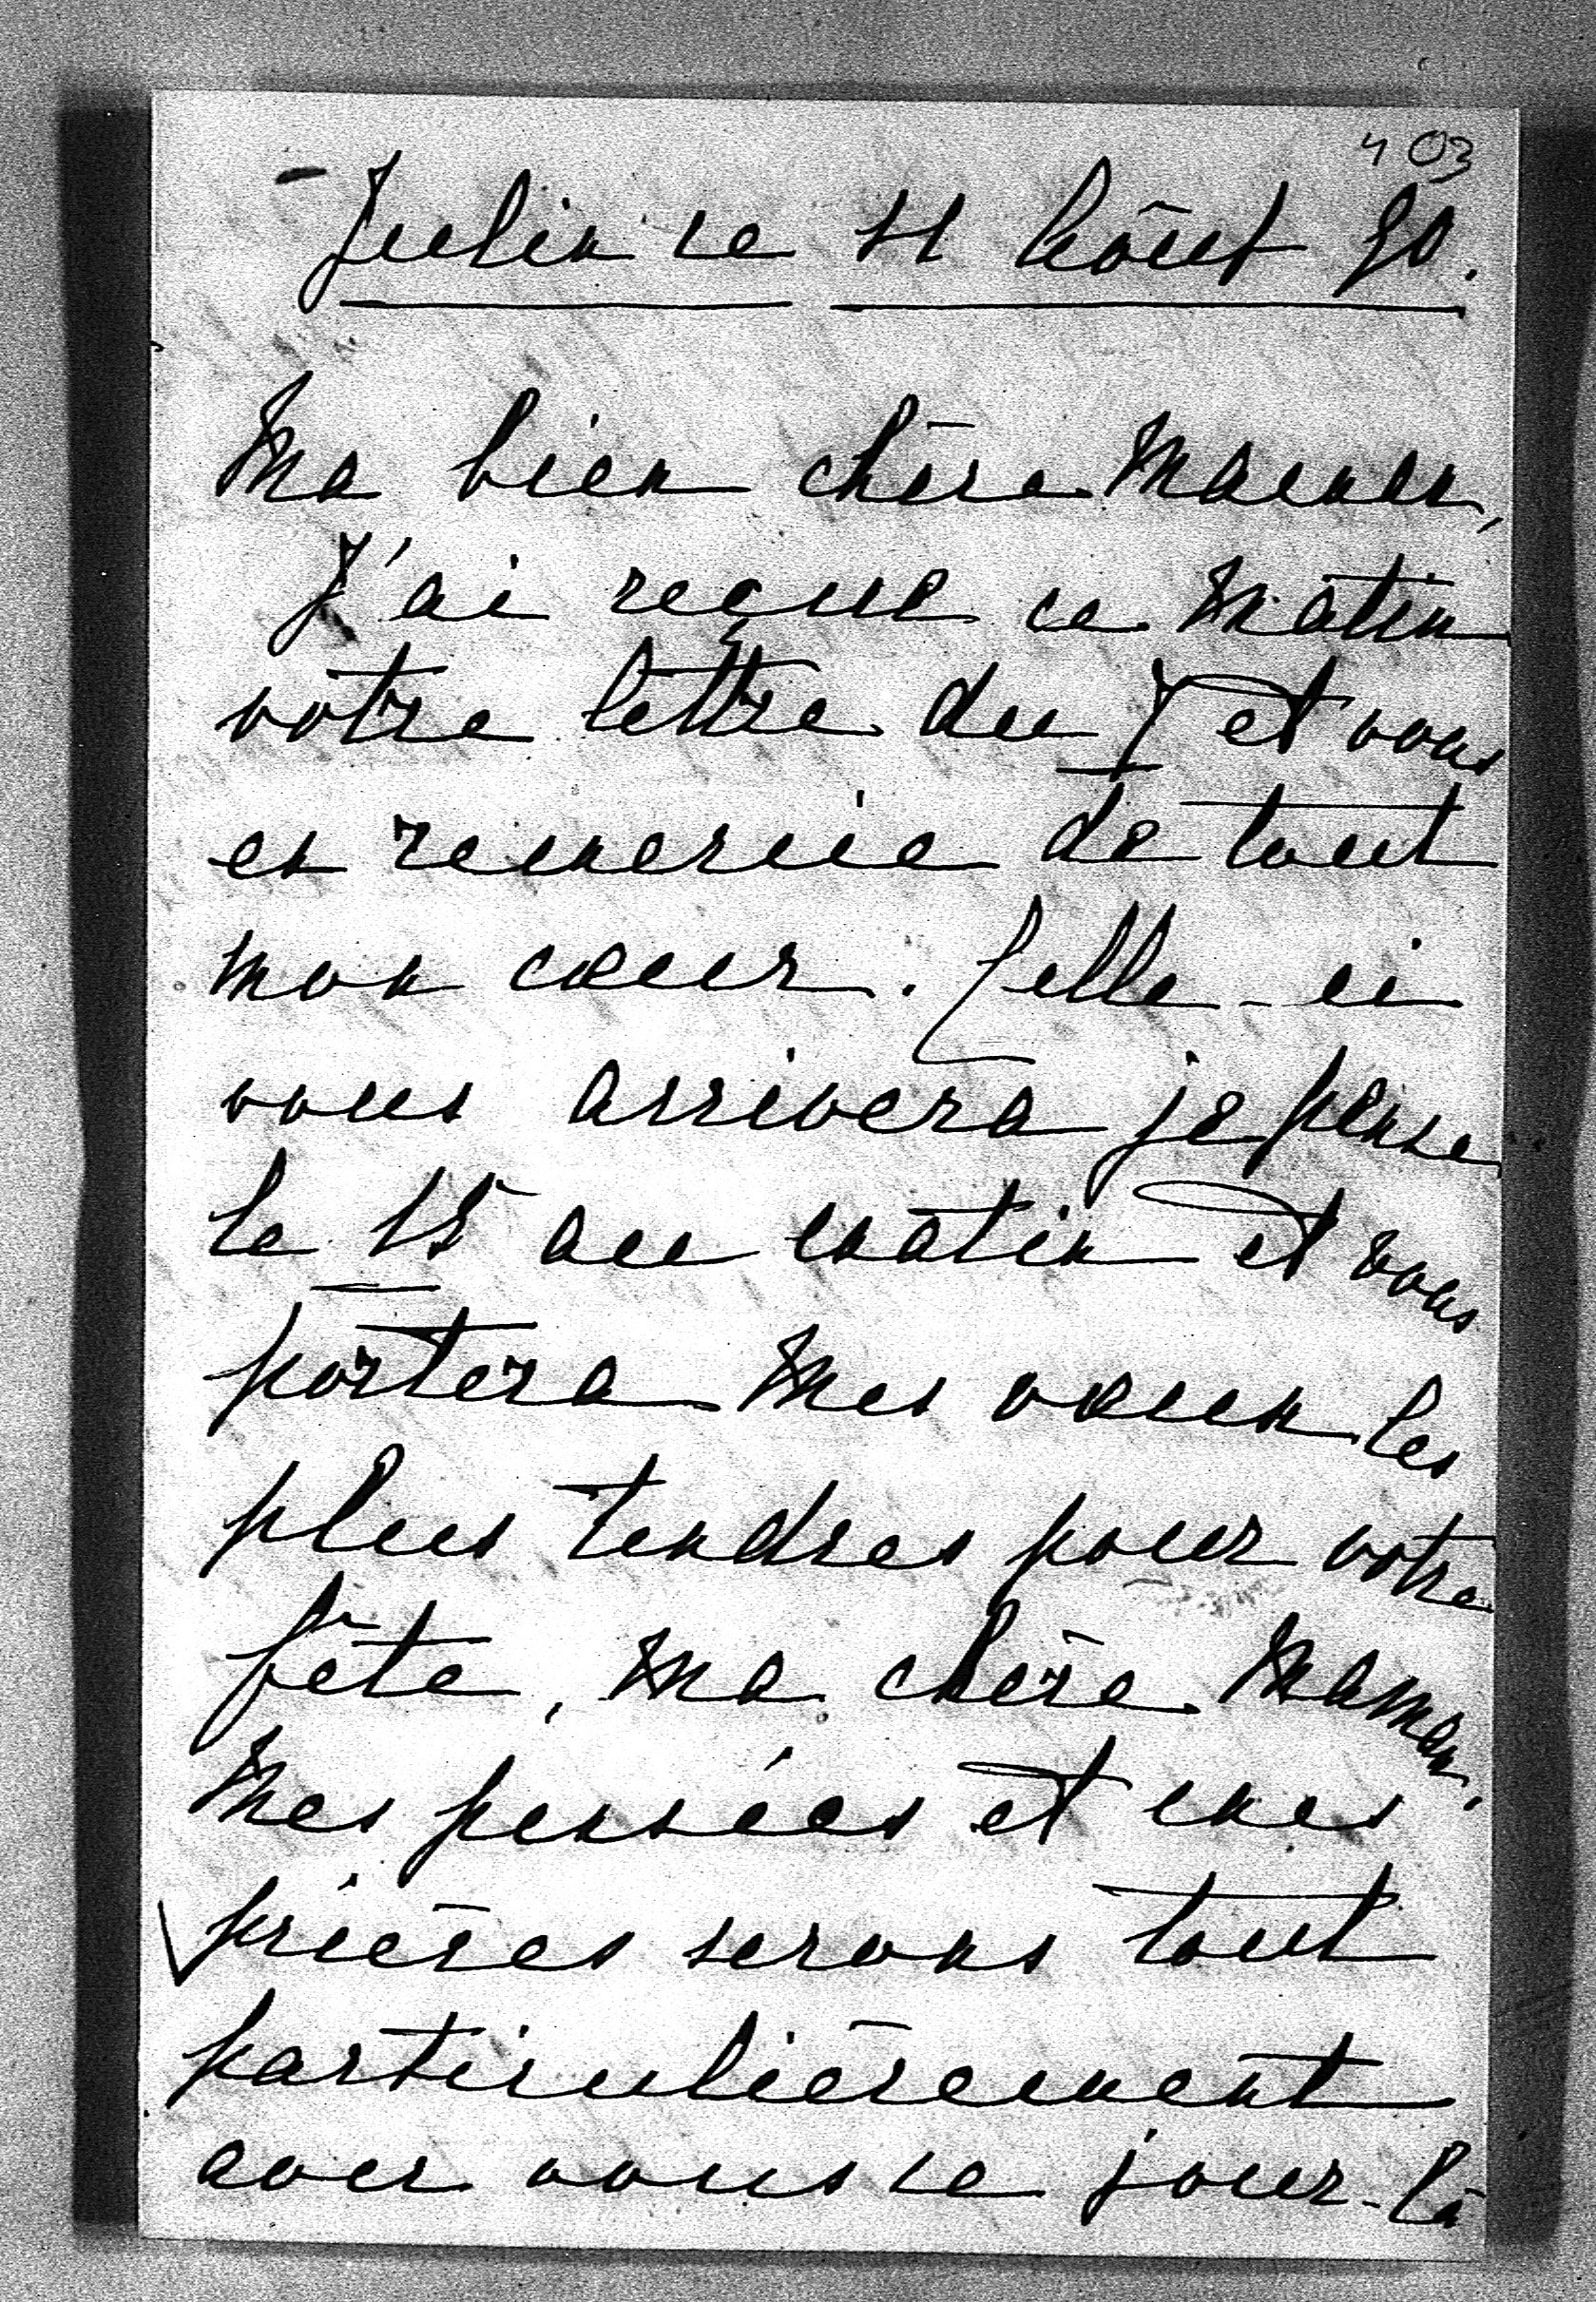 403
Julin ce 11 Août 90.
Ma bien chère Maman,
J'ai reçue ce matin
votre lettre du 7 et vous
en remercie de tout
mon cœur. Celle-ci
vous arrivera je pense
le 15 au matin et vous
portera mes vœux les
plus tendres pour votre
fête, ma chère Maman.
Mes pensées et mes
prières serons tout
particulièrement
avec vous ce jour-là